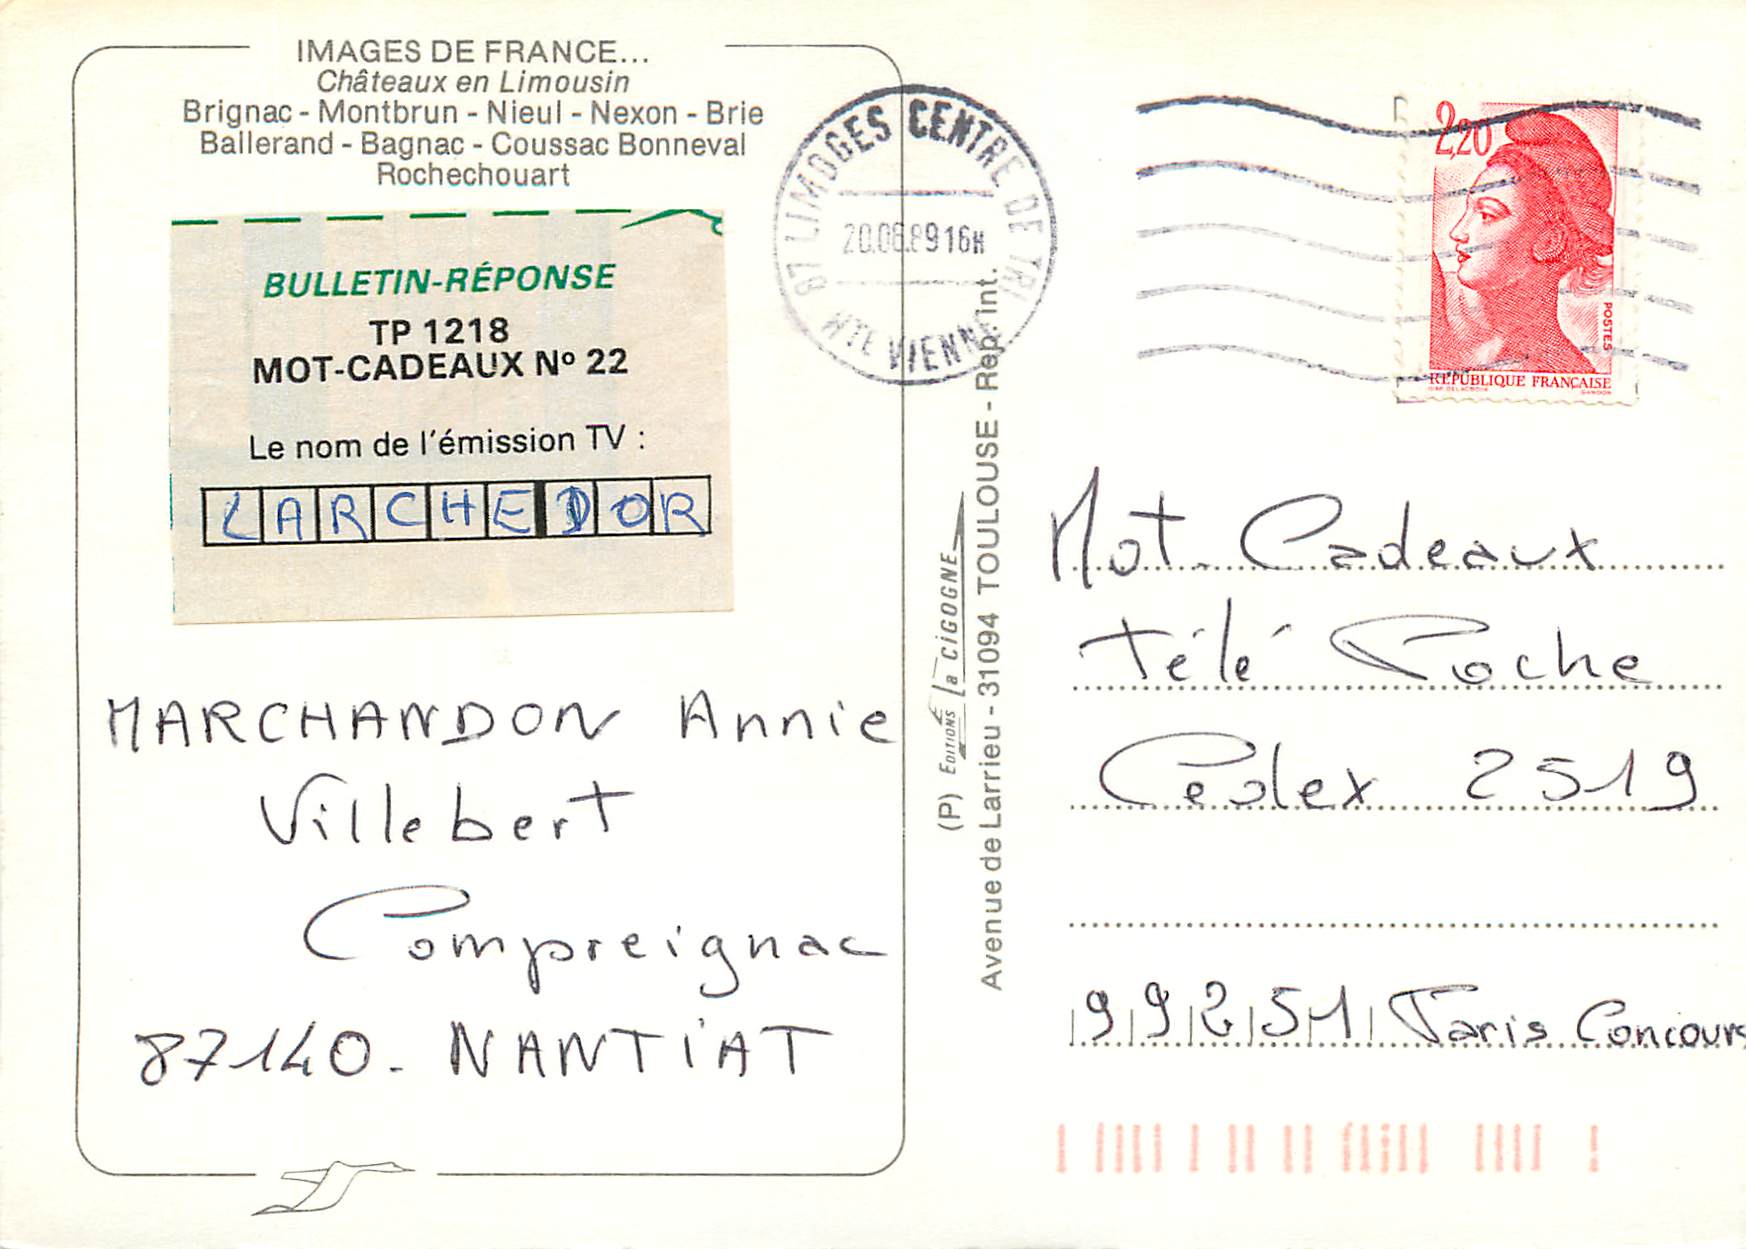 IMAGES DE FRANCE...
Châteaux en Limousin
Brignac - Montbrun - Nieul - Nexon - Brie
Ballerand - Bagnac - Coussac Bonneval
Rochechouart
BULLETIN-RÉPONSE
TP 1218
MOT-CADEAUX Nº 22
Le nom de l'émission TV :
LARCHEDOR
MARCHANDON Annie
Villebert
Compreignac
87140. NANTIAT
87 LIMOGES CENTRE DE TRI
20.06.89 16H
HTE VIENNE
(P) EDITIONS la CIGOGNE
Avenue de Larrieu - 31094 TOULOUSE - Rep. int.
2,20
POSTES
RÉPUBLIQUE FRANÇAISE
GANDON
Mot. Cadeaux
Télé Poche
Cedex 2519
99251 Paris Concours